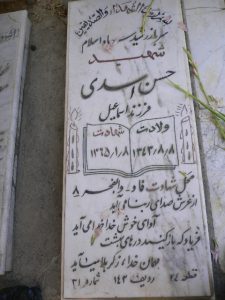 سرباز رشید راه اسلام
شهید
حسن اسدی
فرزند اسماعیل
ولادت شهادت
۱۳۴۳/۸/۸ ۱۳۶۵/۱/۸
محل شهادت فاو - والفجر ۸
از عرش صدای ربنا می‌آید
آوای خوش خدا خدا می‌آید
فریاد که باز کنید درهای بهشت
مهمان خدا ز کربلا می‌آید
قطعه ۲۷ ردیف ۱۴۳ شماره ۳۱